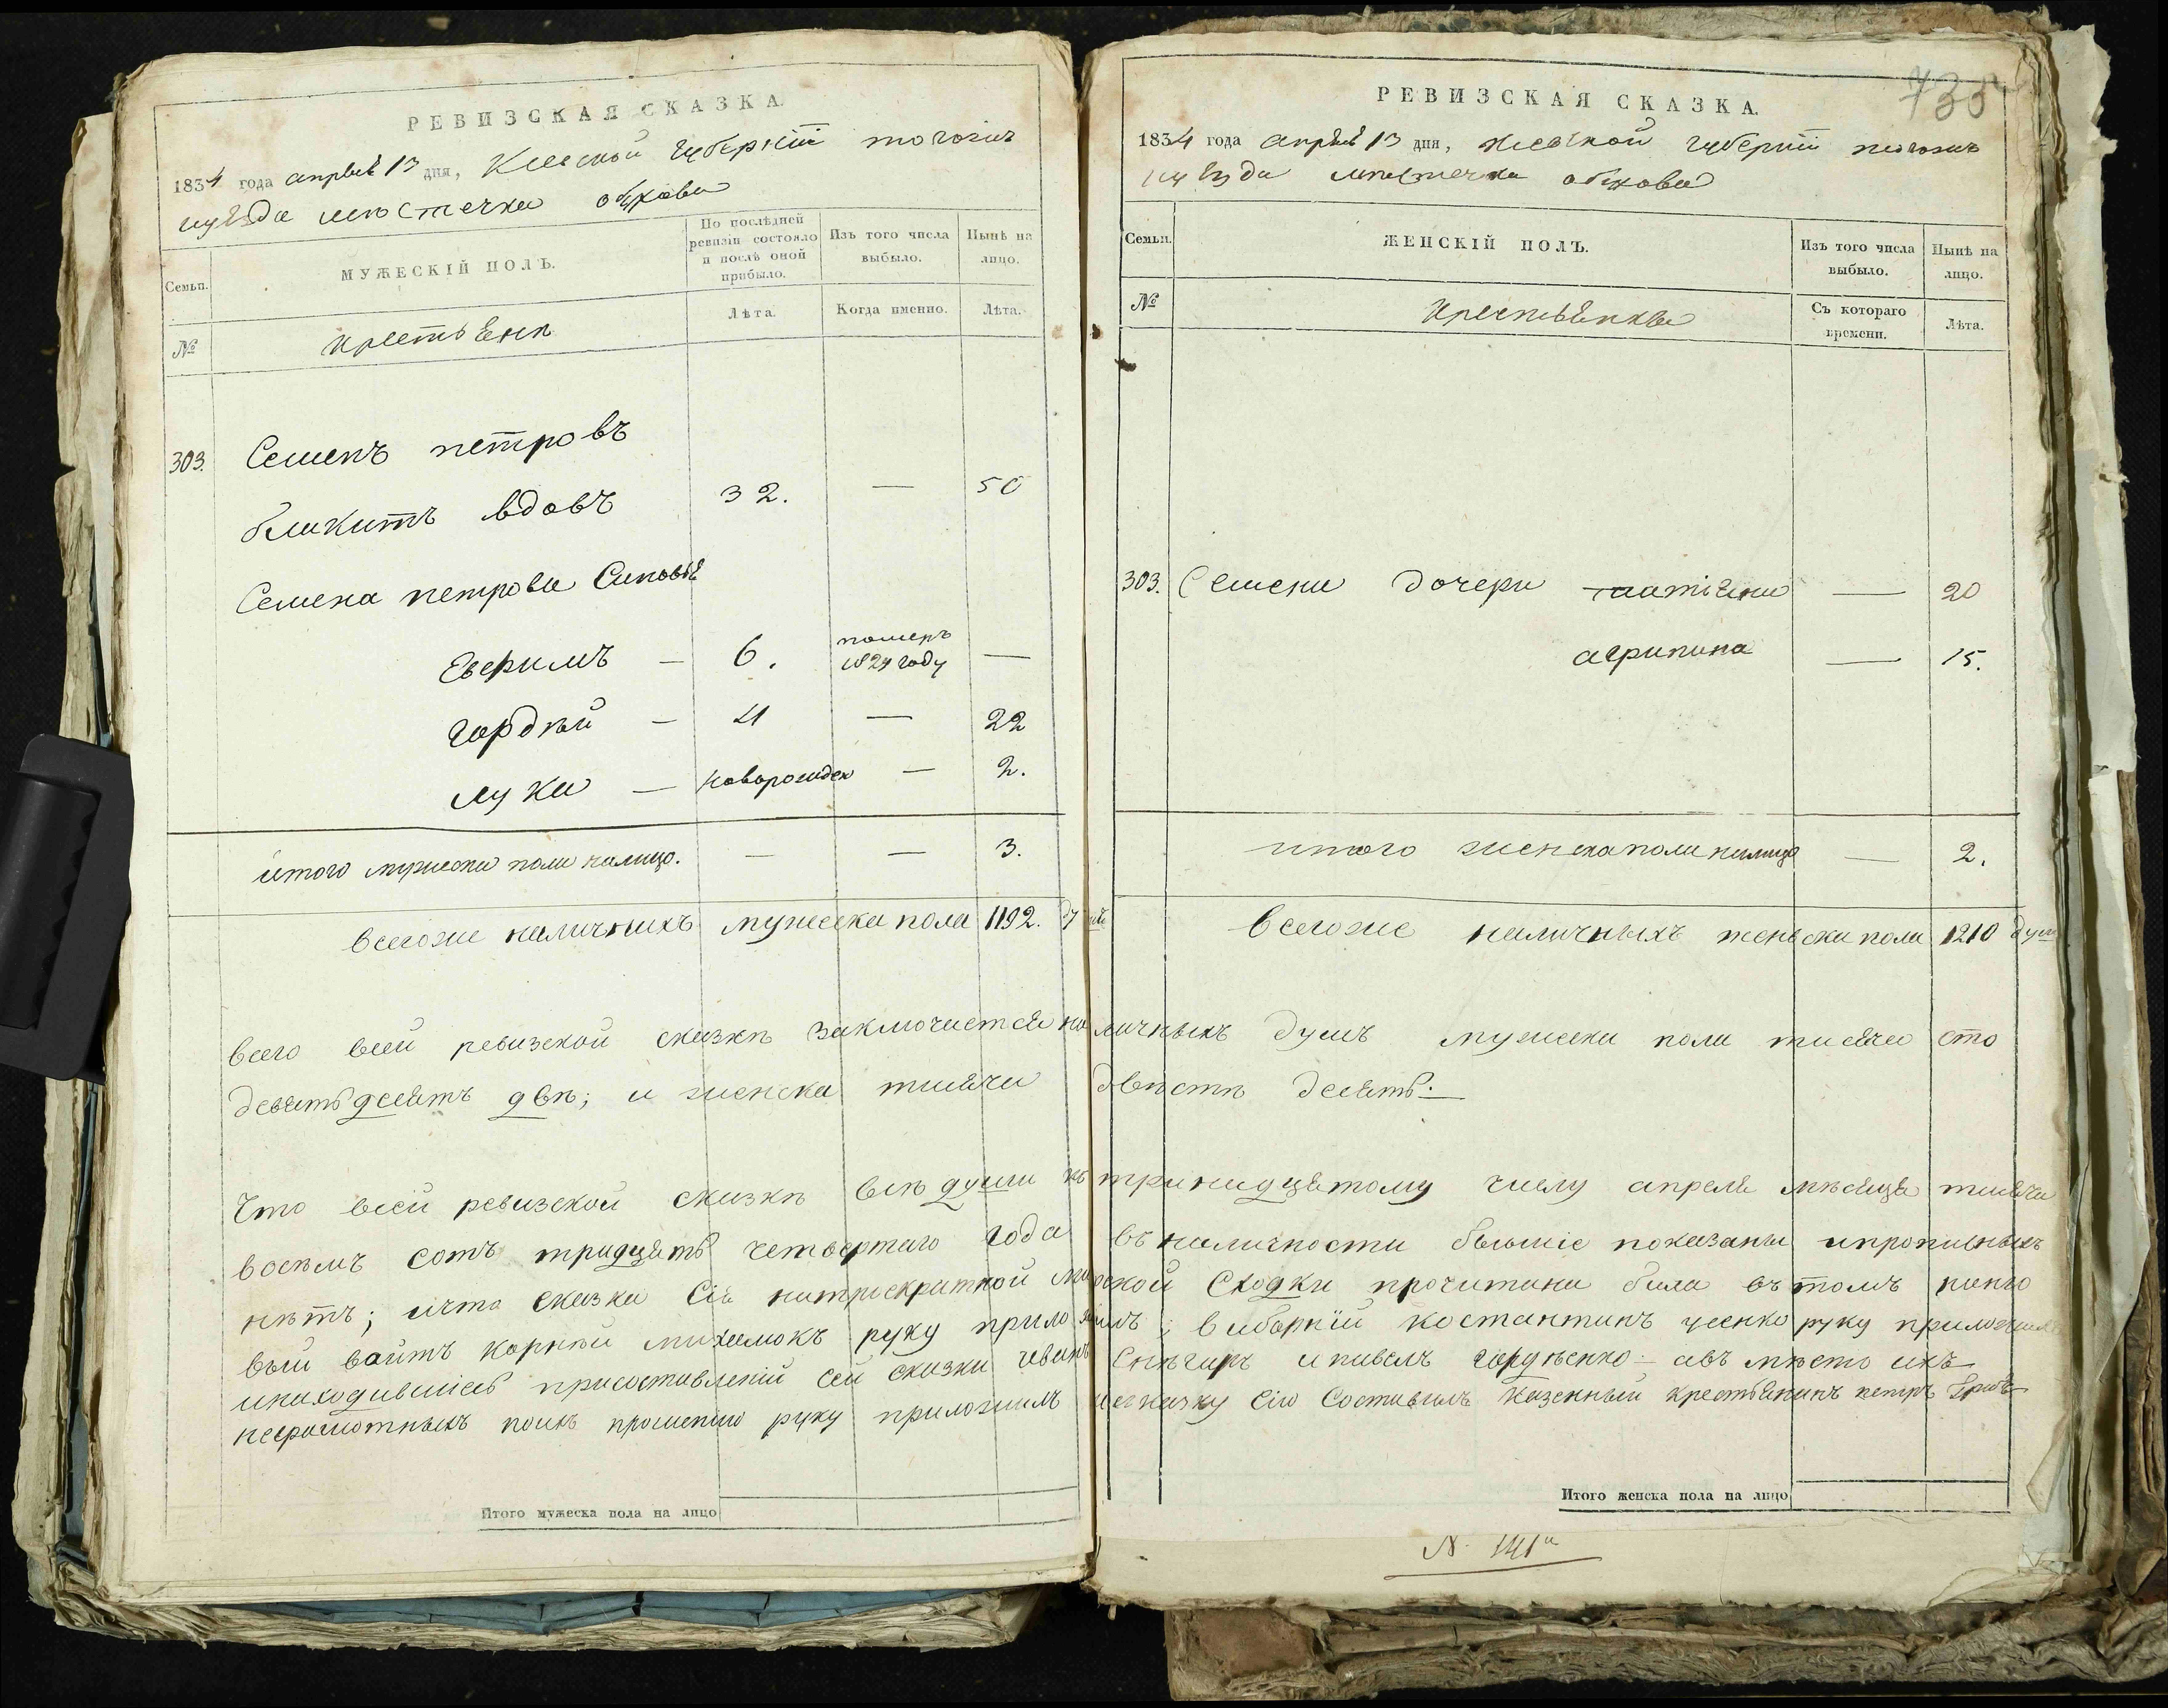 РЕВИЗСКАЯ СКАЗКА
1834 года апрѣля 13 дня, Киевской губерніи тогожъ
уѣзда мѣстечка обуховa
Семьи.
МУЖЕСКІЙ ПОЛЪ.
По послѣдней ревизіи состояло и послѣ оной прибыло.
Изъ того числа выбыло.
Нынѣ на лицо.
№
крестьяня
Лѣта.
Когда именно.
Лѣта.
303. Семенъ петровъ
блакитъ вдовъ 32. — 50
Семена петрова Синовья
Евфимъ — 6. померъ 1824 году —
гордѣй — 4 — 22
лука — новорожден — 2.
итого мужеска пола налицо. — — 3.
всегоже наличнихъ мужеска пола 1192. душъ
Итого мужеска пола на лицо
РЕВИЗСКАЯ СКАЗКА.
1834 года апрѣля 13 дня, Киевской губерніи тогожъ
уѣзда мѣстечка обухова
Семьи.
ЖЕНСКІЙ ПОЛЪ.
Изъ того числа выбыло.
Нынѣ на лицо.
№
крестьянки
Съ котораго времени.
Лѣта.
303. Семена дочери татіяна — 20
агрипина — 15.
итого женска пола налицо — 2.
всегоже наличныхъ женска пола 1210 душ
всего всей ревизской сказкѣ заключается наличныхъ душъ мужеска пола тисяча сто
девятьдесятъ двѣ; и женска тисяча двѣстѣ десять.
Что всей ревизской сказкѣ всѣ души къ тринадцятому числу апреля мѣсяця тисяча
восѣмъ сотъ тридцять четвертаго года въ наличности бывшіе показаны ипропис­ныхъ
нѣтъ; ичто сказка Сія натриекратной мирской Сходки прочитана била въ томъ
вый войтъ корнѣй михалюкъ руку приложилъ; виборній костантинъ усенко руку приложил
инаходившіесь присоставленій сей сказки Снѣгиръ ипавелъ гордѣенко авъ мѣсто ихъ
неграмотныхъ поихъ прошению руку приложилъ исказку Сію Составилъ казенный крестьянинъ петръ
Итого женска пола на лицо